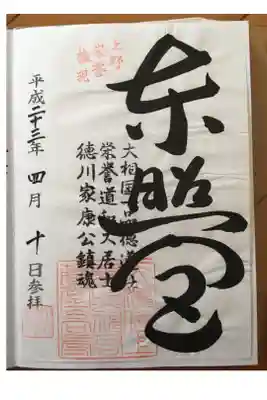 東照宮
大相国一品徳蓮社
栄誉道和大居士
徳川家康公鎮魂
上野
栄誉
権現
平成二十三年 四月 十日参拝